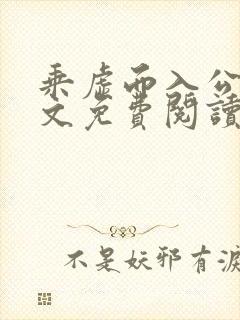 乘虛而入公
文免費閱讀
不是妖邪有淚